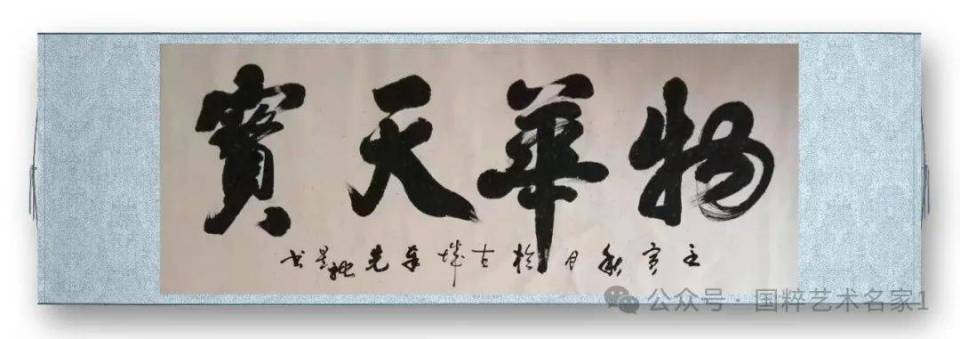 物華天寳
壬寅秋月於古城車先
公众号 · 国粹艺术名家1